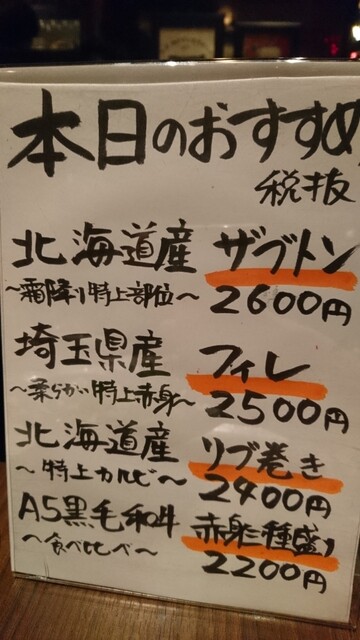 本日のおすすめ
税抜
北海道産 ザブトン
〜霜降り特上部位〜 2600円
埼玉県産 フィレ
〜柔らかい特上赤身〜 2500円
北海道産 リブ巻き
〜特上カルビ〜 2400円
A5黒毛和牛 赤身二種盛り
〜食べ比べ〜 2200円